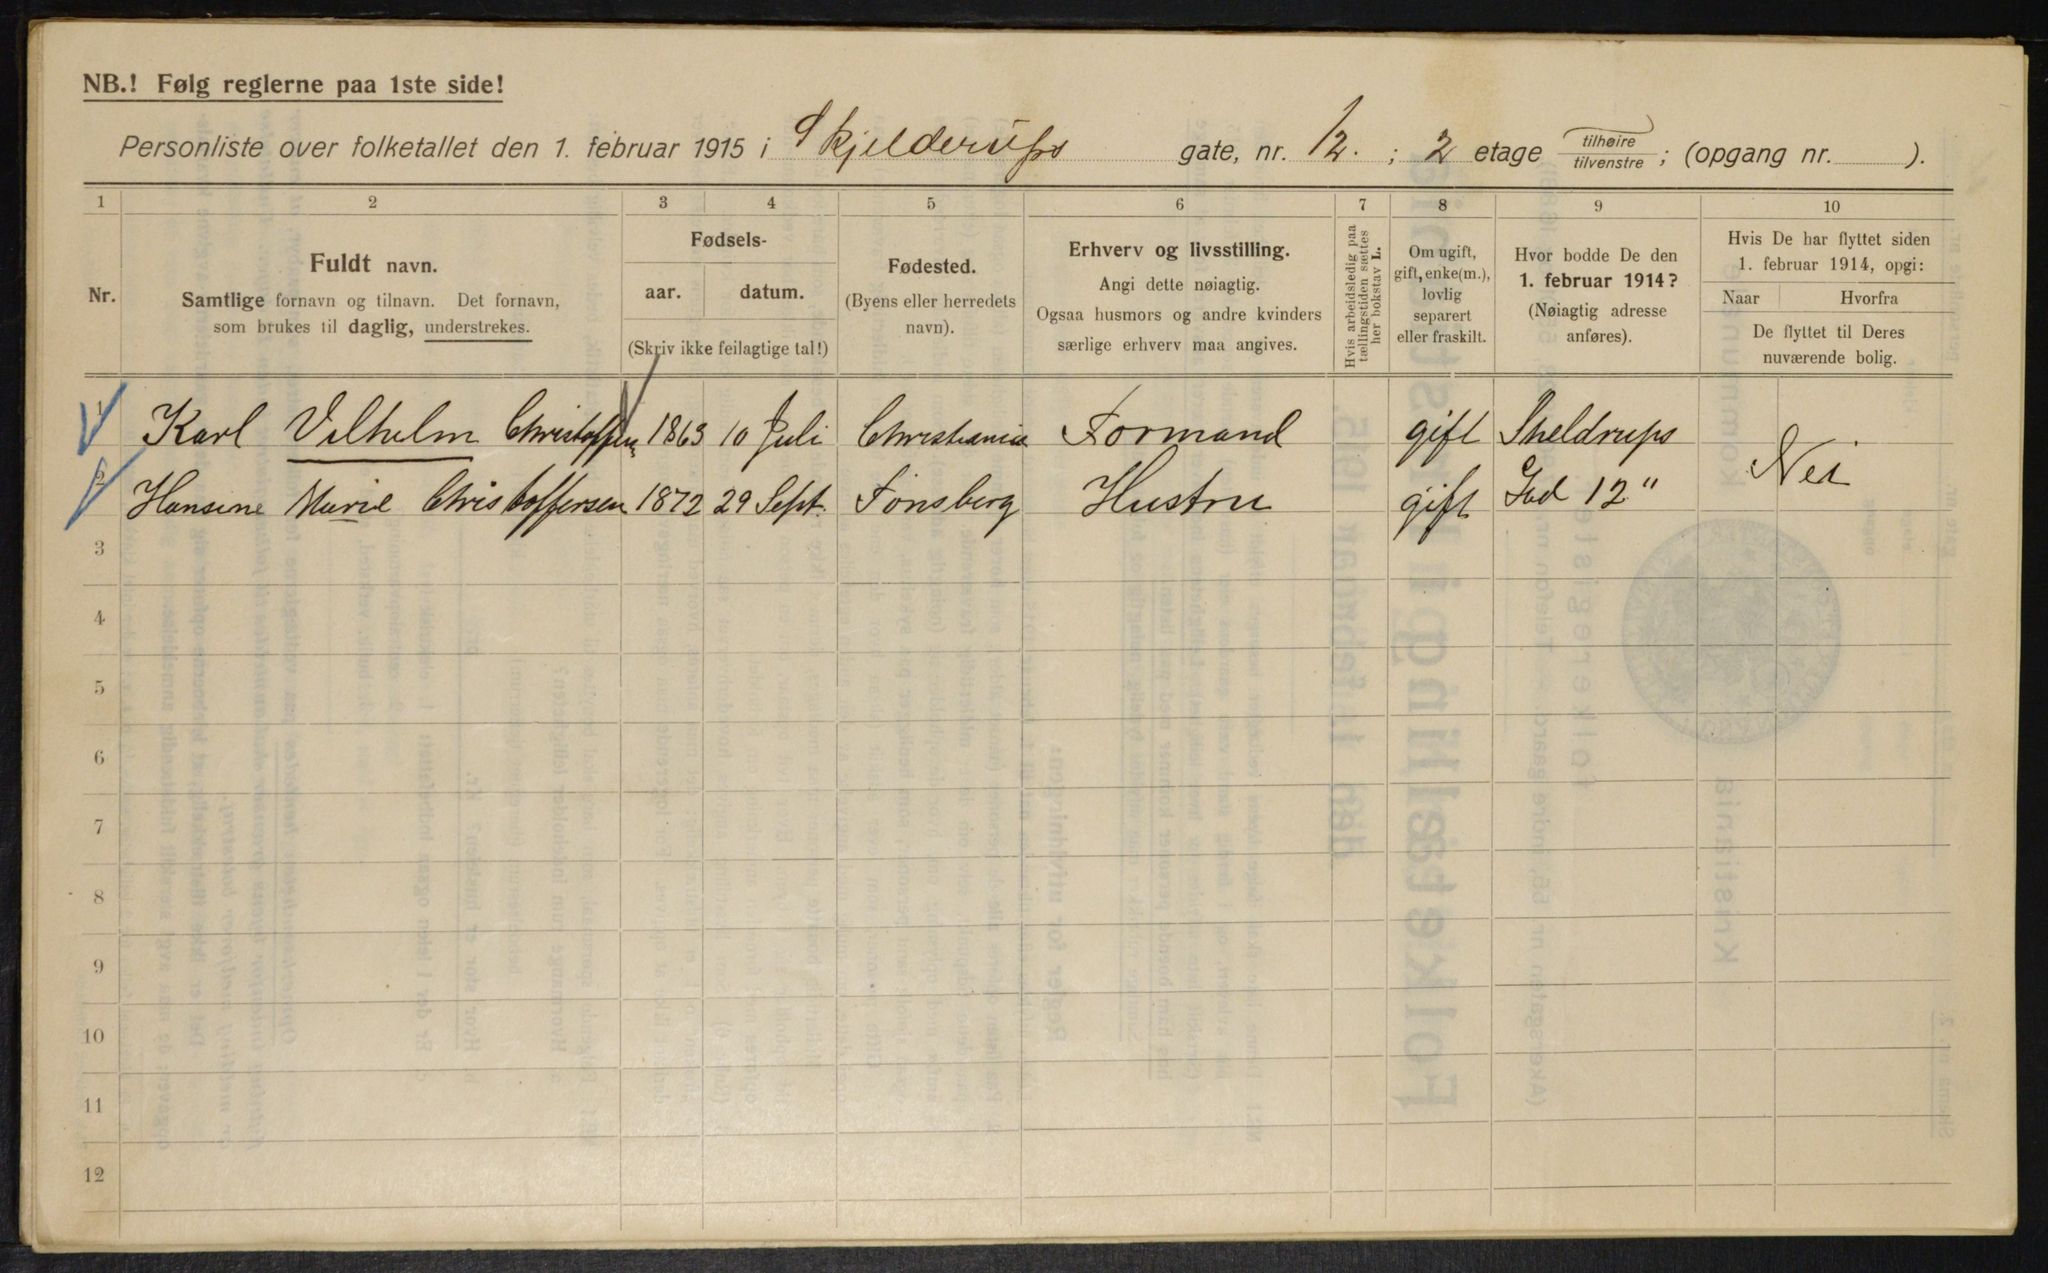 NB.! Følg reglerne paa 1ste side!
Personliste over folketallet den 1. februar 1915 i Skjelderups gate, nr. 12. ; 2 etage tilhøire/tilvenstre ; (opgang nr. ).
1 2 3 4 5 6 7 8 9 10
Nr.
Fuldt navn.
Samtlige fornavn og tilnavn. Det fornavn,
som brukes til daglig, understrekes.
Fødsels-
aar. datum.
(Skriv ikke feilagtige tal!)
Fødested.
(Byens eller herredets
navn).
Erhverv og livsstilling.
Angi dette nøiagtig.
Ogsaa husmors og andre kvinders
særlige erhverv maa angives.
Hvis arbeidsledig paa
tællingstiden sættes
her bokstav L.
Om ugift,
gift, enke(m.),
lovlig
separert
eller fraskilt.
Hvor bodde De den
1. februar 1914?
(Nøiagtig adresse
anføres).
Hvis De har flyttet siden
1. februar 1914, opgi:
Naar Hvorfra
De flyttet til Deres
nuværende bolig.
1 Karl Vilhelm Christoffersen 1863 10 Juli Christiania Formand gift Sheldrups
2 Hansine Marie Christoffersen 1872 29 Sept. Tønsberg Hustru gift Gad 12" Nei
3
4
5
6
7
8
9
10
11
12